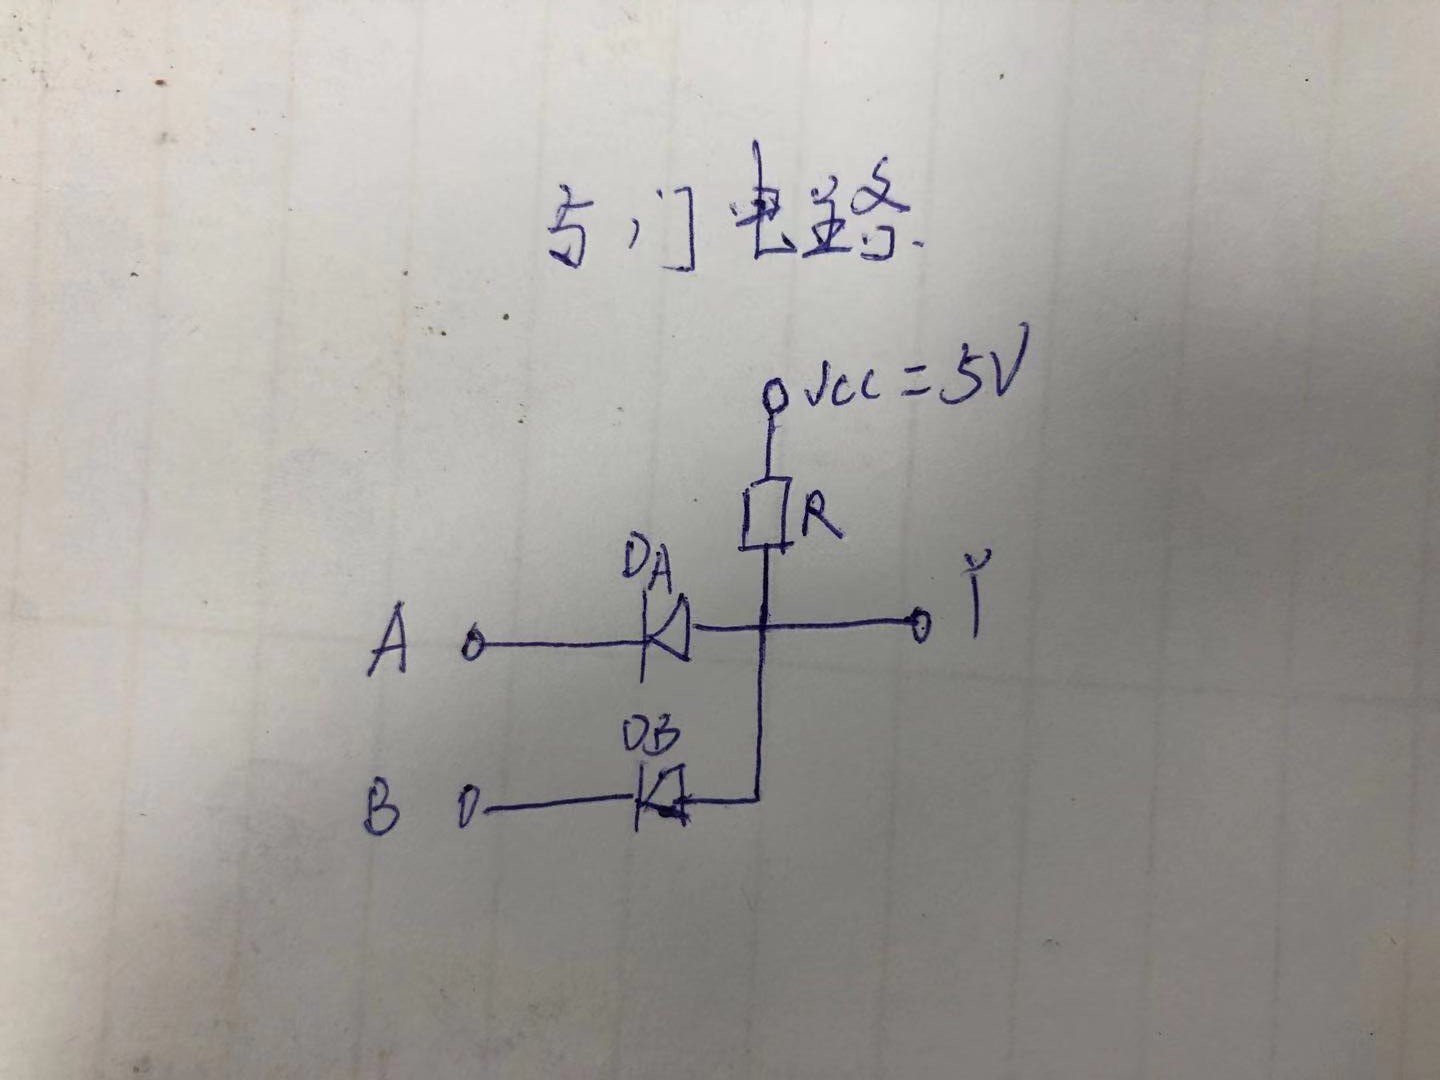 与门电路
VCC = 5V
R
DA
Y
A
DB
B